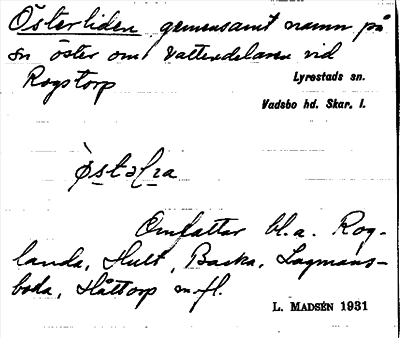 Österliden gemensamt namn på
sn öster om vattendelaren vid
Rogstorp
Lyrestads sn.
Vadsbo hd. Skar. l.
Omfattar bl.a. Rog-
landa, Hult, Backa, Lagmans-
boda, Håttorp m.fl.
L. MADSÉN 1931